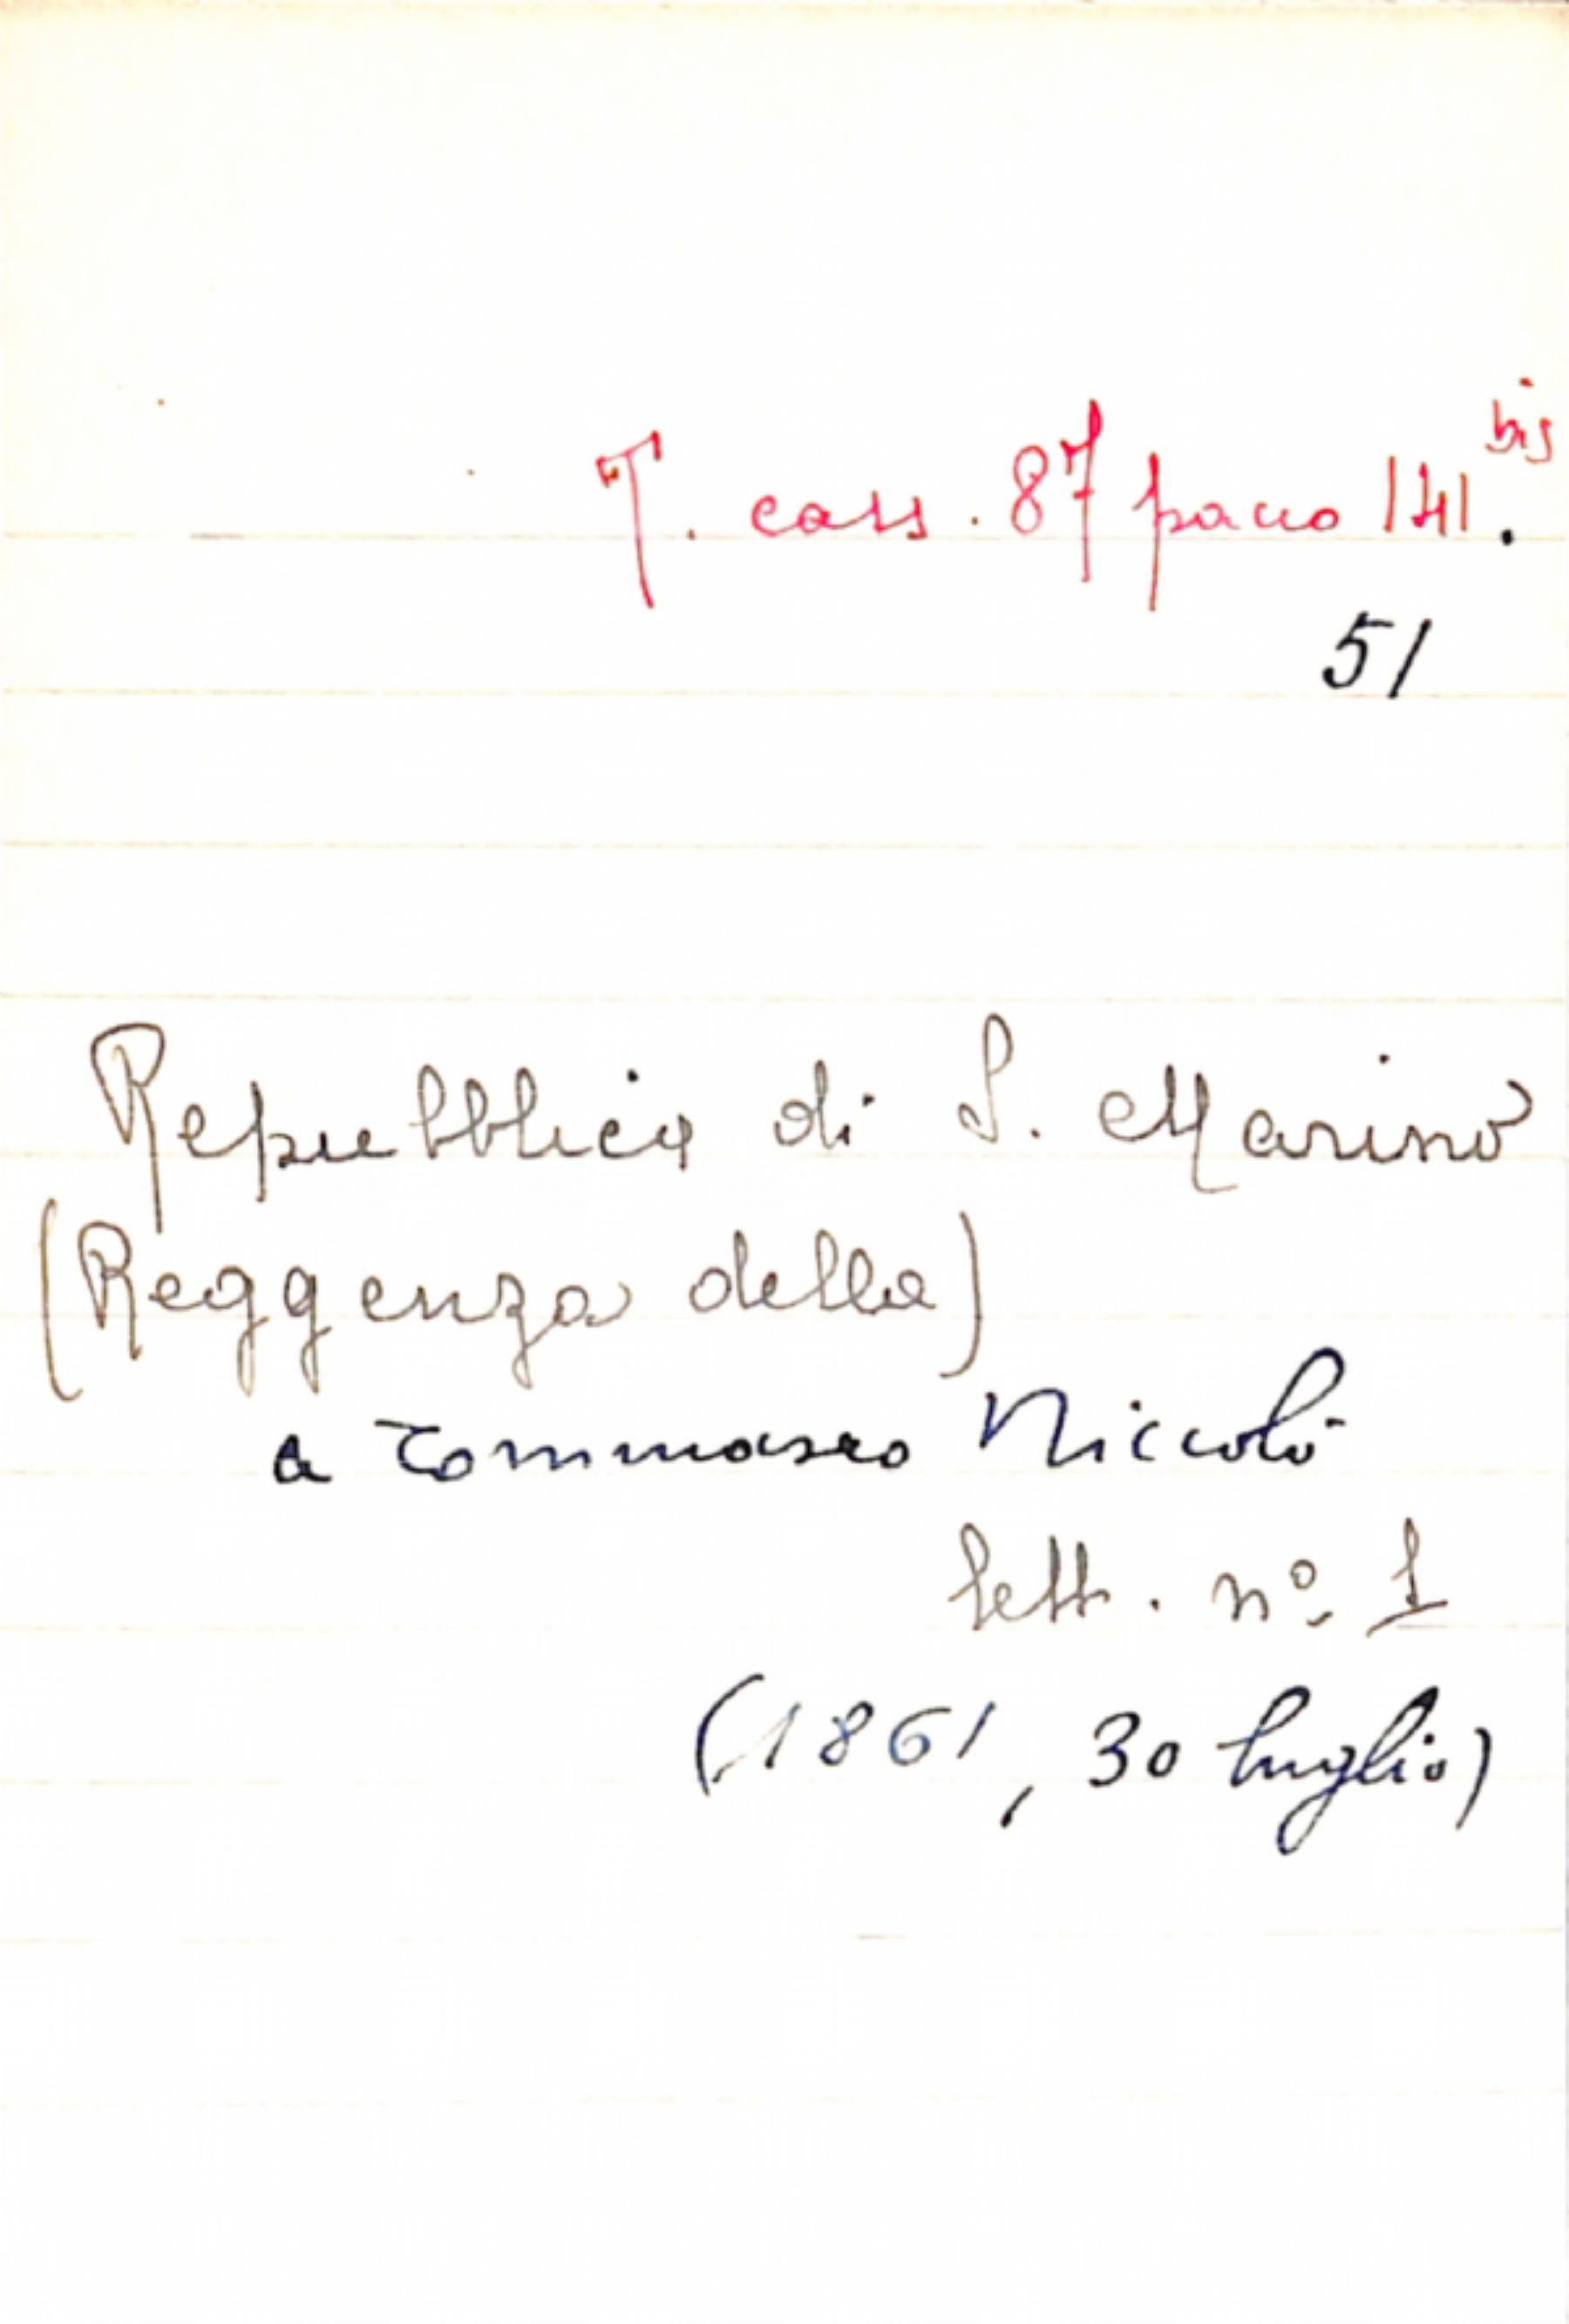 T. cass. 87 pacco 141. bis
51
Repubblica di S. Marino
(Reggenza della)
a Tommaseo Niccolò
lett. nº 1
(1861, 30 luglio)